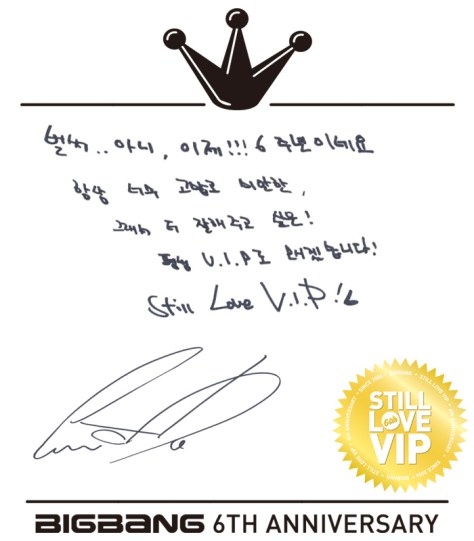 벌써.. 아니, 이제!!! 6주년이네요
항상 너무 고맙고 미안한,
그래서 더 잘해주고 싶은!
평생 V.I.P로 모시겠습니다!
Still Love V.I.P!
STILL
LOVE
6th
VIP
BIGBANG 6TH ANNIVERSARY